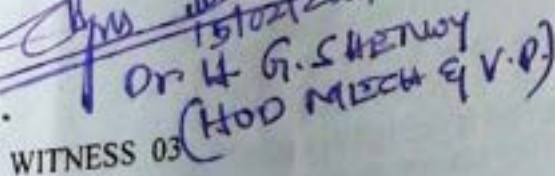 15/02/2
Dr H G. SHENOY
(HOD MECH & V.P)
WITNESS 03